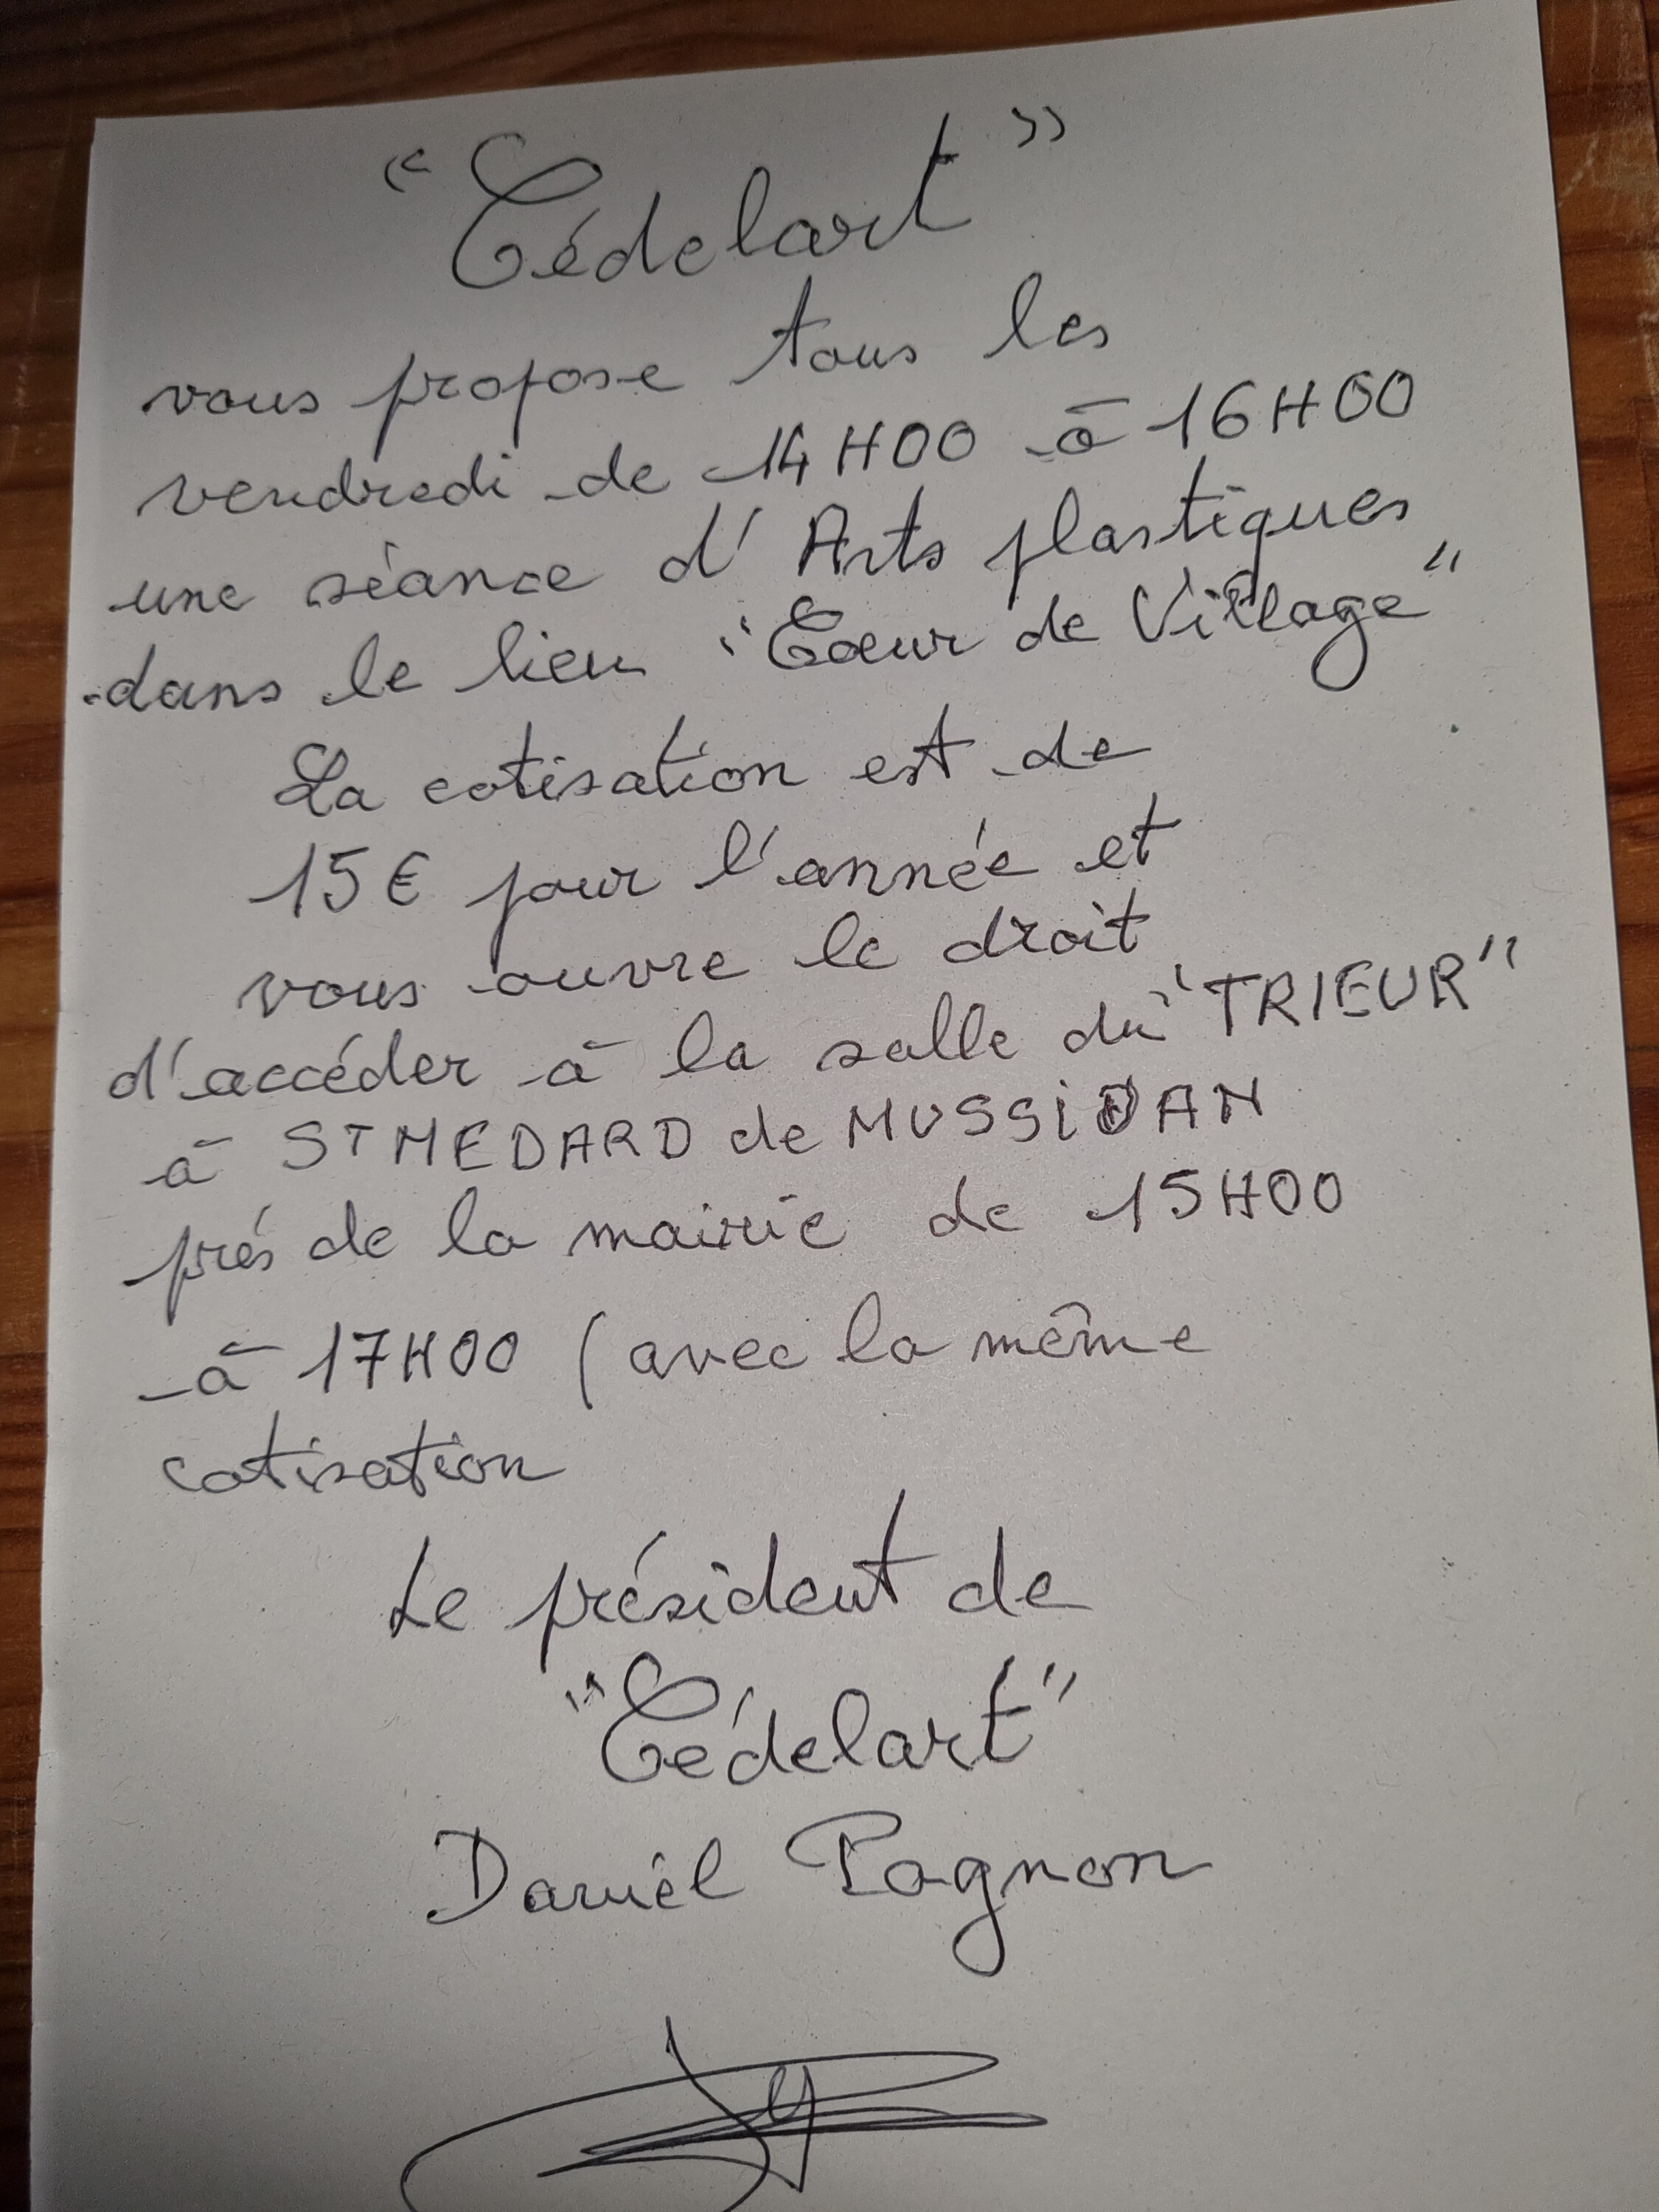 "Cédelart"
vous propose tous les
vendredi de 14H00 à 16H00
une séance d'Arts plastiques
dans le lieu "Cœur de Village"
La cotisation est de
15€ pour l'année et
vous ouvre le droit
d'accéder à la salle du "TRIEUR"
à ST MEDARD de MUSSiDAN
prés de la mairie de 15H00
à 17H00 (avec la même
cotisation
Le président de
"Cédelart"
Daniel Pagnon